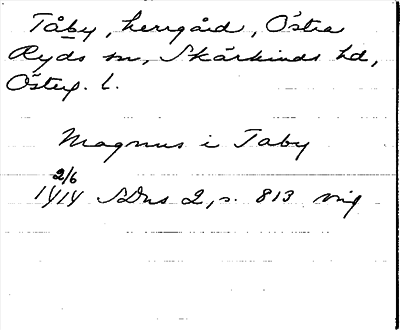 Tåby, herrgård, Östra
Ryds sn, Skärkinds hd,
Österg. l.
Magnus i Taby
2/6
1414 SDns 2, s. 813 mil